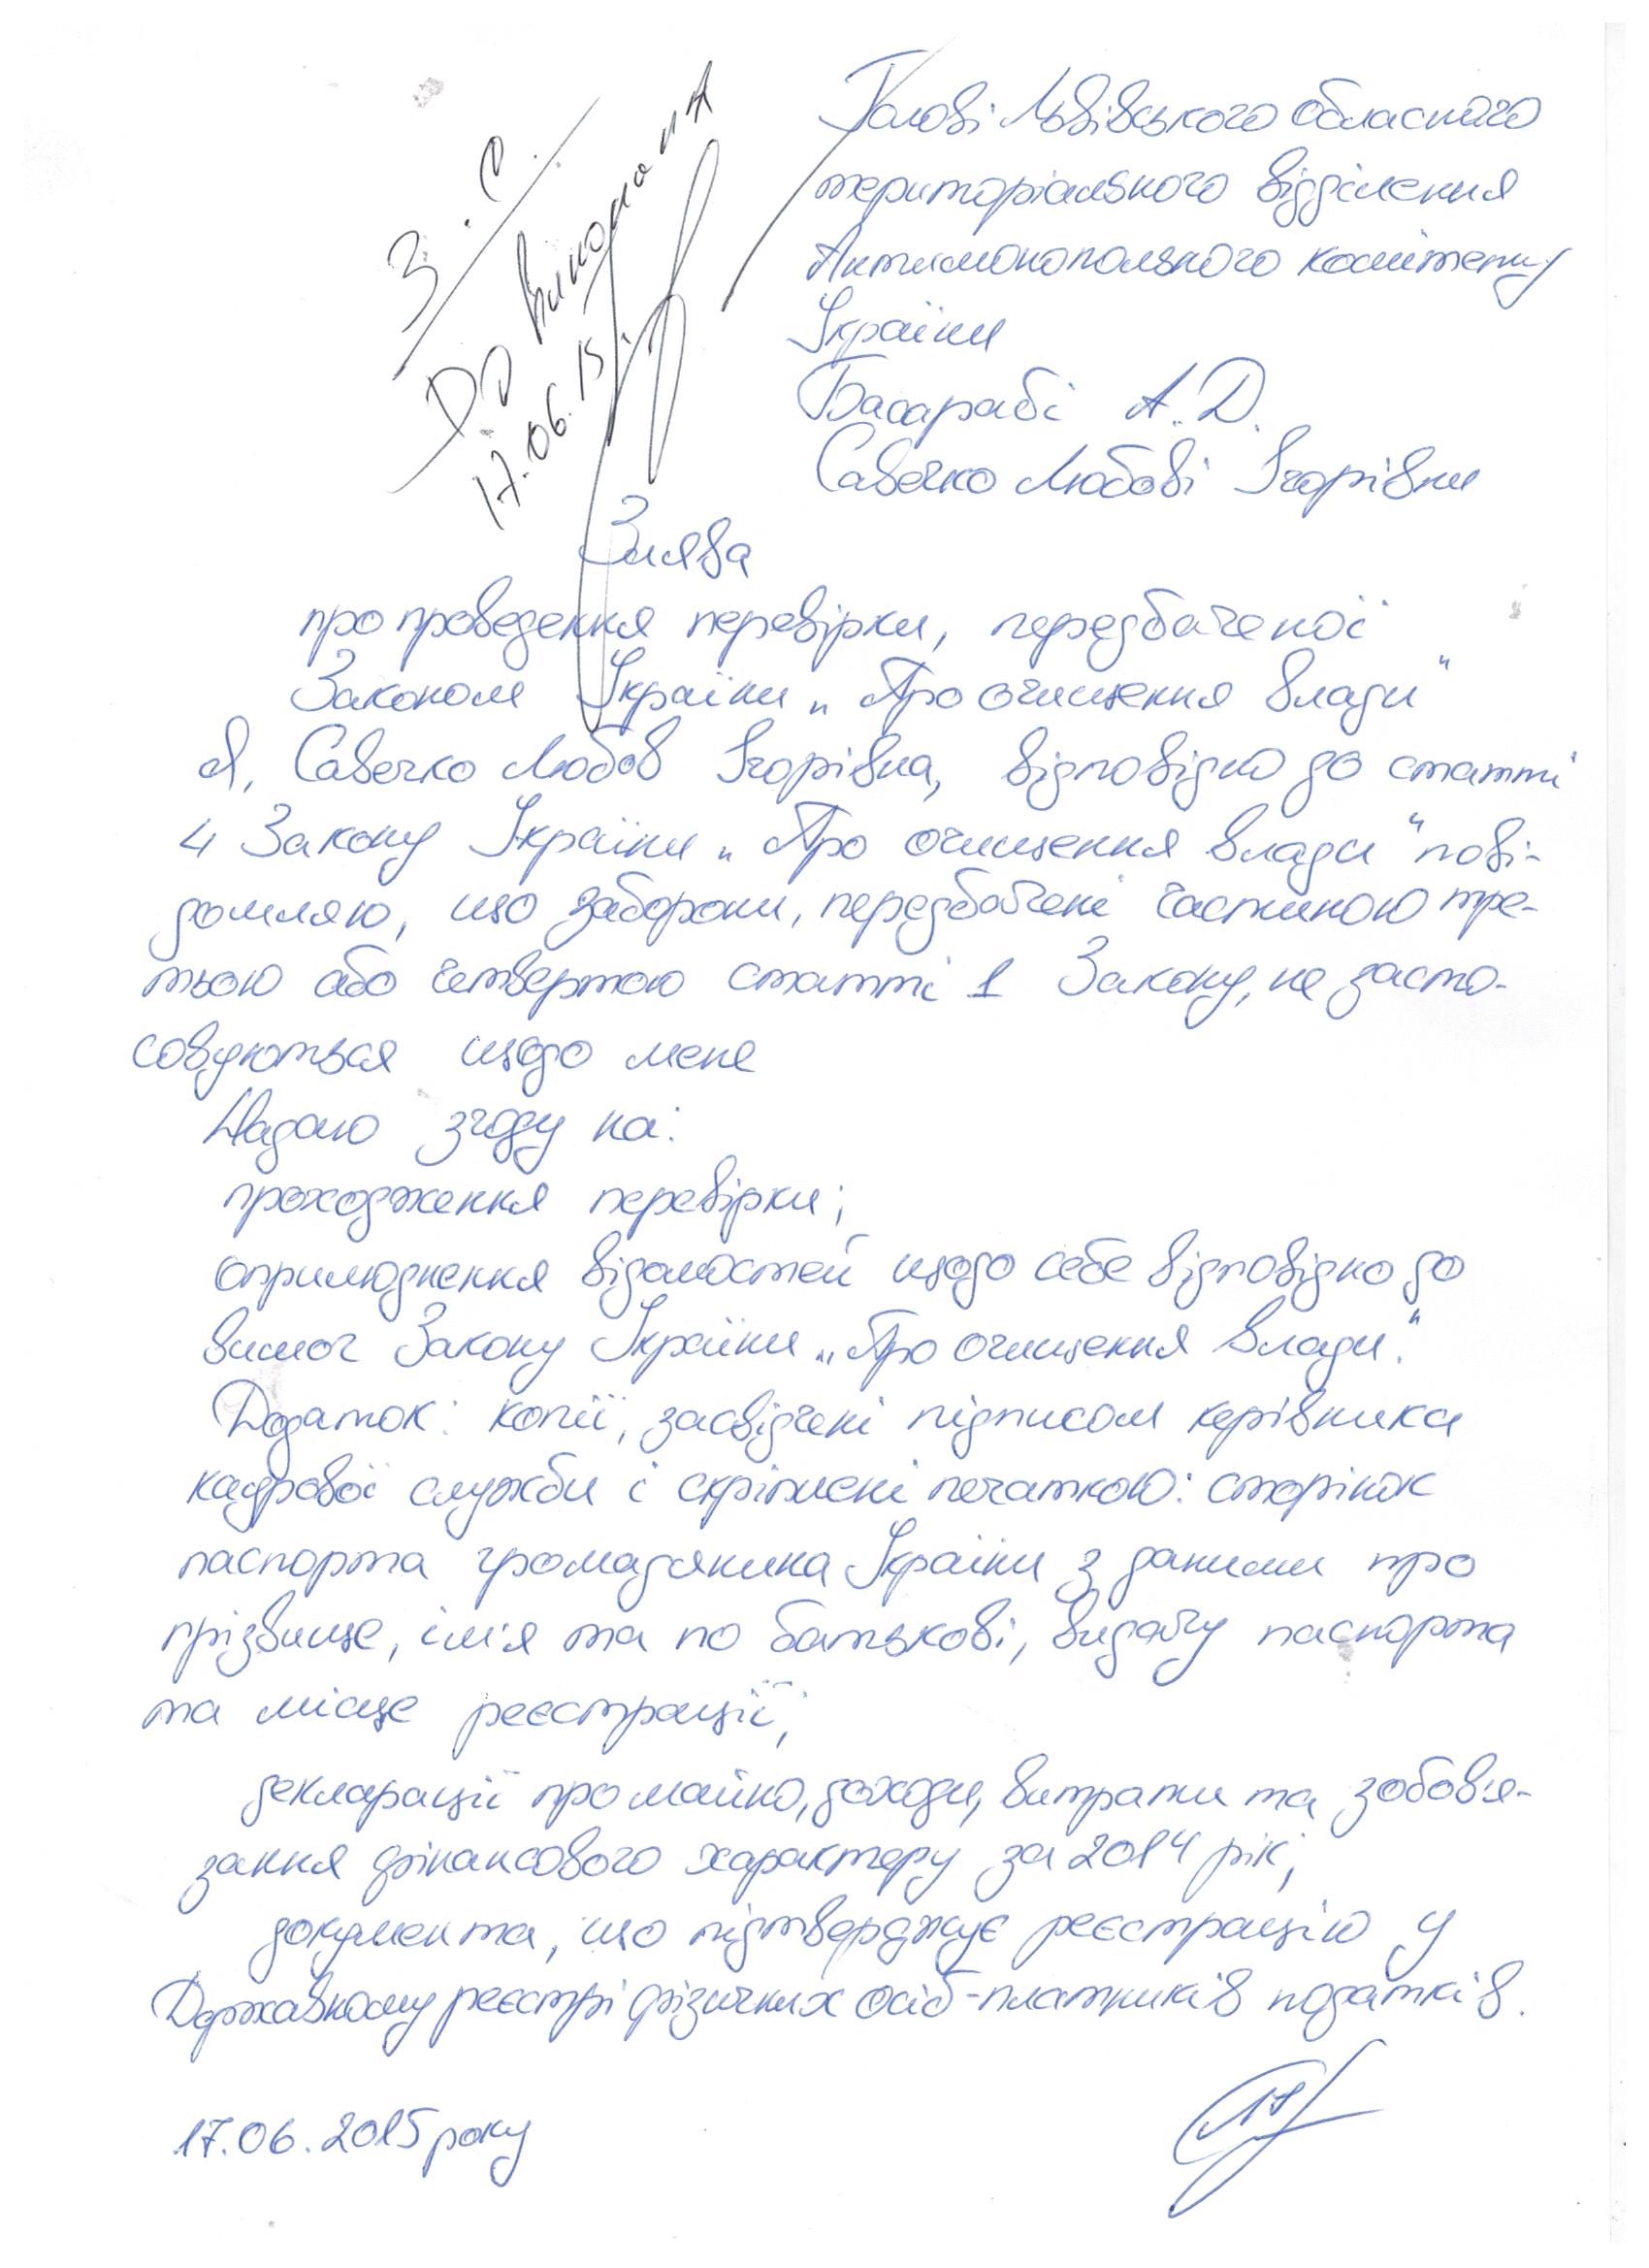 Голові Львівського обласного
територіального відділення
Антимонопольного комітету
України
Басарабі А.Д.
Савечко Любові Ігорівни
З.С.
До виконання
17.06.15
Заява
про проведення перевірки, передбаченої
Законом України „Про очищення влади"
Я, Савечко Любов Ігорівна, відповідно до статті
4 Закону України „Про очищення влади" пові-
домляю, що заборони, передбачені частиною тре-
тьою або четвертою статті 1 Закону, не засто-
совуються щодо мене
Надаю згоду на:
проходження перевірки;
оприлюднення відомостей щодо себе відповідно до
вимог Закону України „Про очищення влади".
Додаток: копії, засвідчені підписом керівника
кадрової служби і скріплені печаткою: сторінок
паспорта громадянина України з даними про
прізвище, ім'я та по батькові, видачу паспорта
та місце реєстрації;
декларації про майно, доходи, витрати та зобов'я-
зання фінансового характеру за 2014 рік;
документа, що підтверджує реєстрацію у
Державному реєстрі фізичних осіб-платників податків.
17.06.2015 року